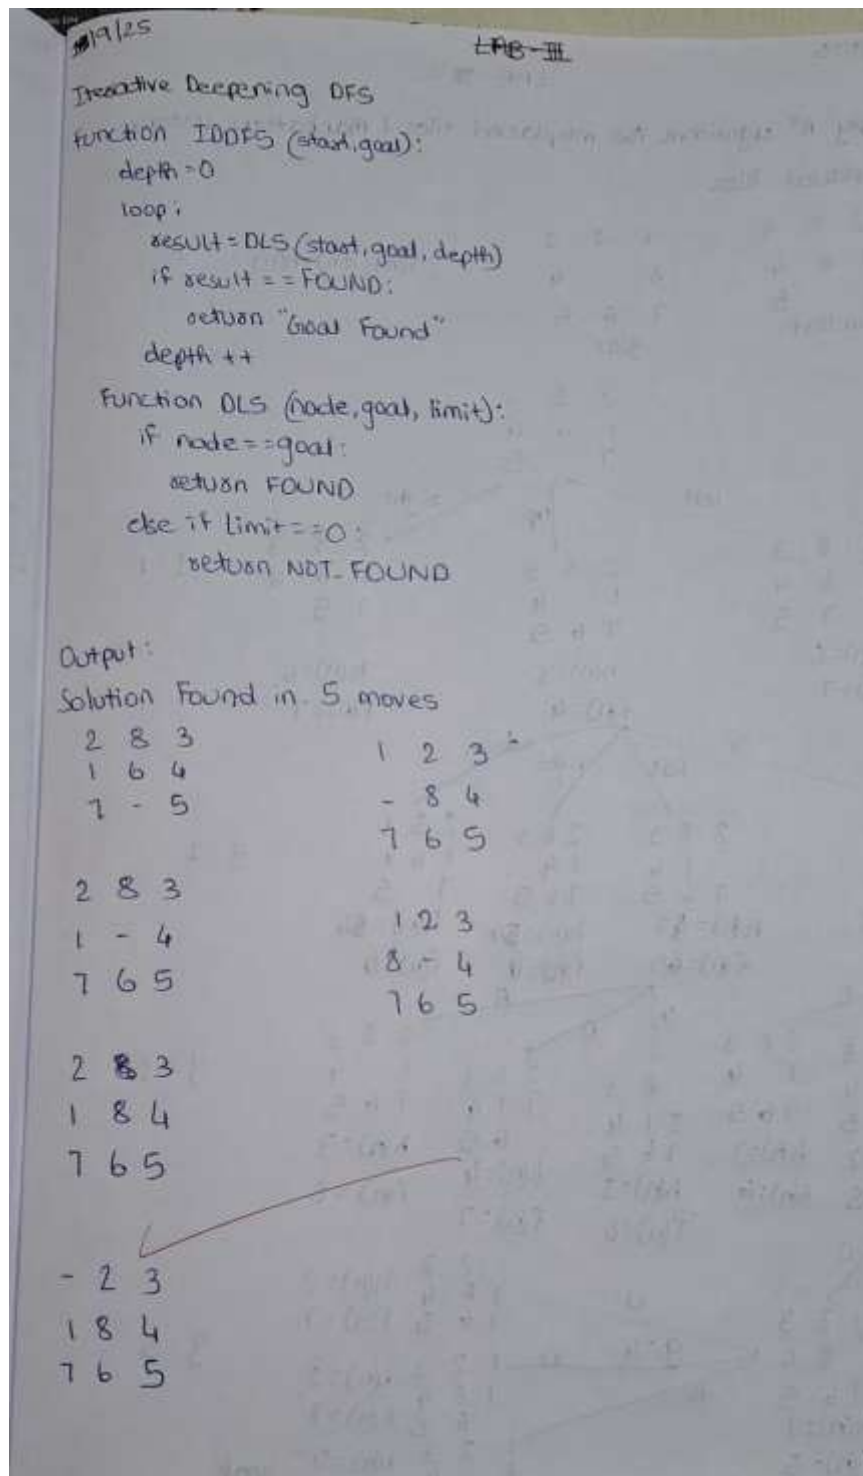 /9/25
LAB-III
Iterative Deepening DFS
Function IDDFS (start, goal):
depth=0
loop:
result = DLS (start, goal, depth)
if result == FOUND:
return "Goal Found"
depth ++
Function DLS (node, goal, limit):
if node==goal:
return FOUND
else if limit==0:
return NOT_FOUND
Output:
Solution Found in 5 moves
2 8 3
1 6 4
7 - 5
2 8 3
1 - 4
7 6 5
2 3
1 8 4
7 6 5
- 2 3
1 8 4
7 6 5
1 2 3
- 8 4
7 6 5
1 2 3
8 - 4
7 6 5